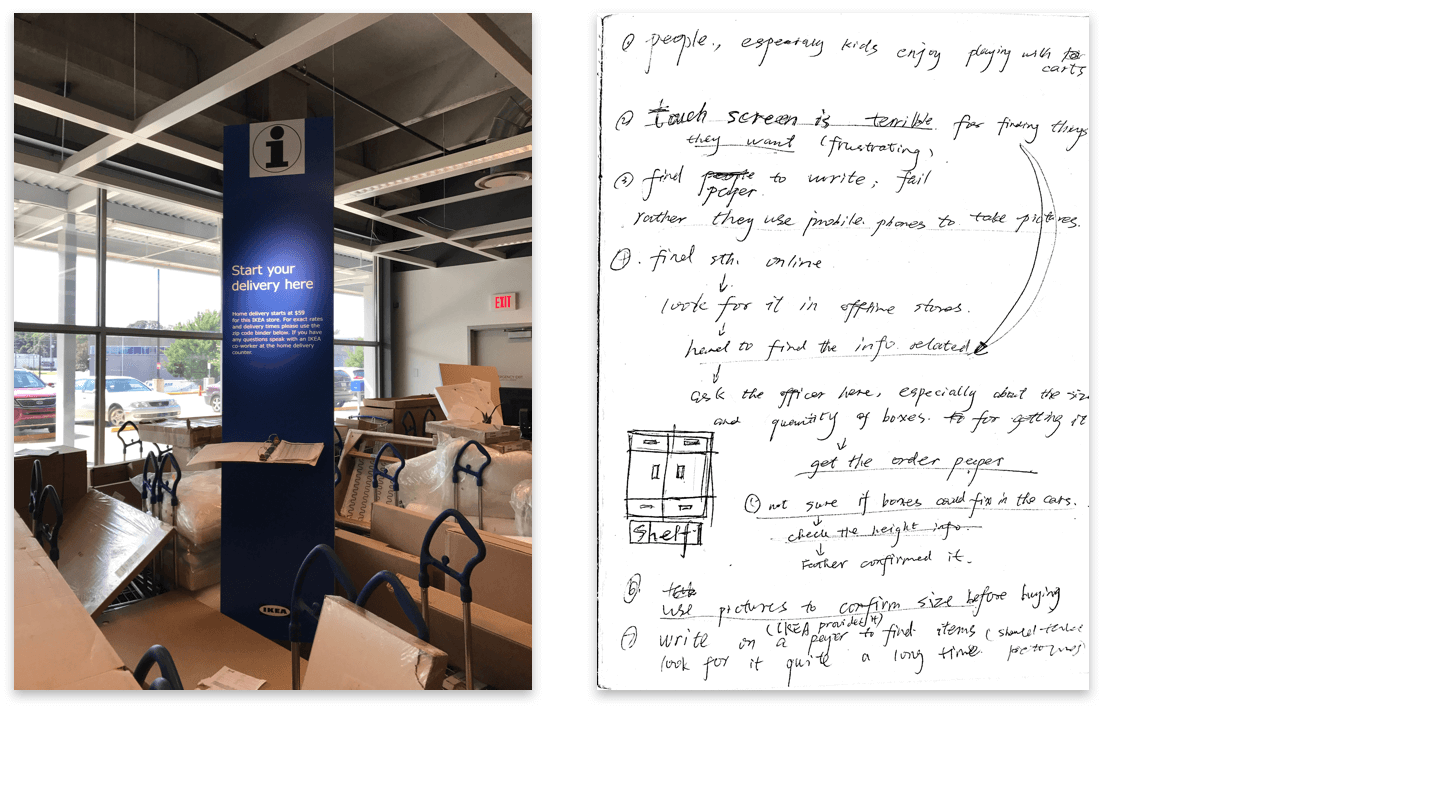 i
Start your
delivery here
Home delivery starts at $59
for this IKEA store. For exact rates
and delivery times please use the
zip code binder below. If you have
any questions speak with an IKEA
co-worker at the home delivery
counter.
EXIT
IKEA
① people., especially kids enjoy playing with
carts
② touch screen is terrible for finding things
they want (frustrating)
③ find to write; fail
paper
rather they use mobile phones to take pictures.
④. find sth. online
↓
look for it in offline stores.
↓
hard to find the info related
↓
ask the officer here, especially about the size
and quantity of boxes. for getting it
↓
get the order paper
shelf
not sure if boxes could fix in the cars.
↓
check the height info.
↓
Father confirmed it.
⑥.
use pictures to confirm size before buying
(IKEA provided it)
⑦ write on a paper to find items (should take
look for it quite a long time pictures)